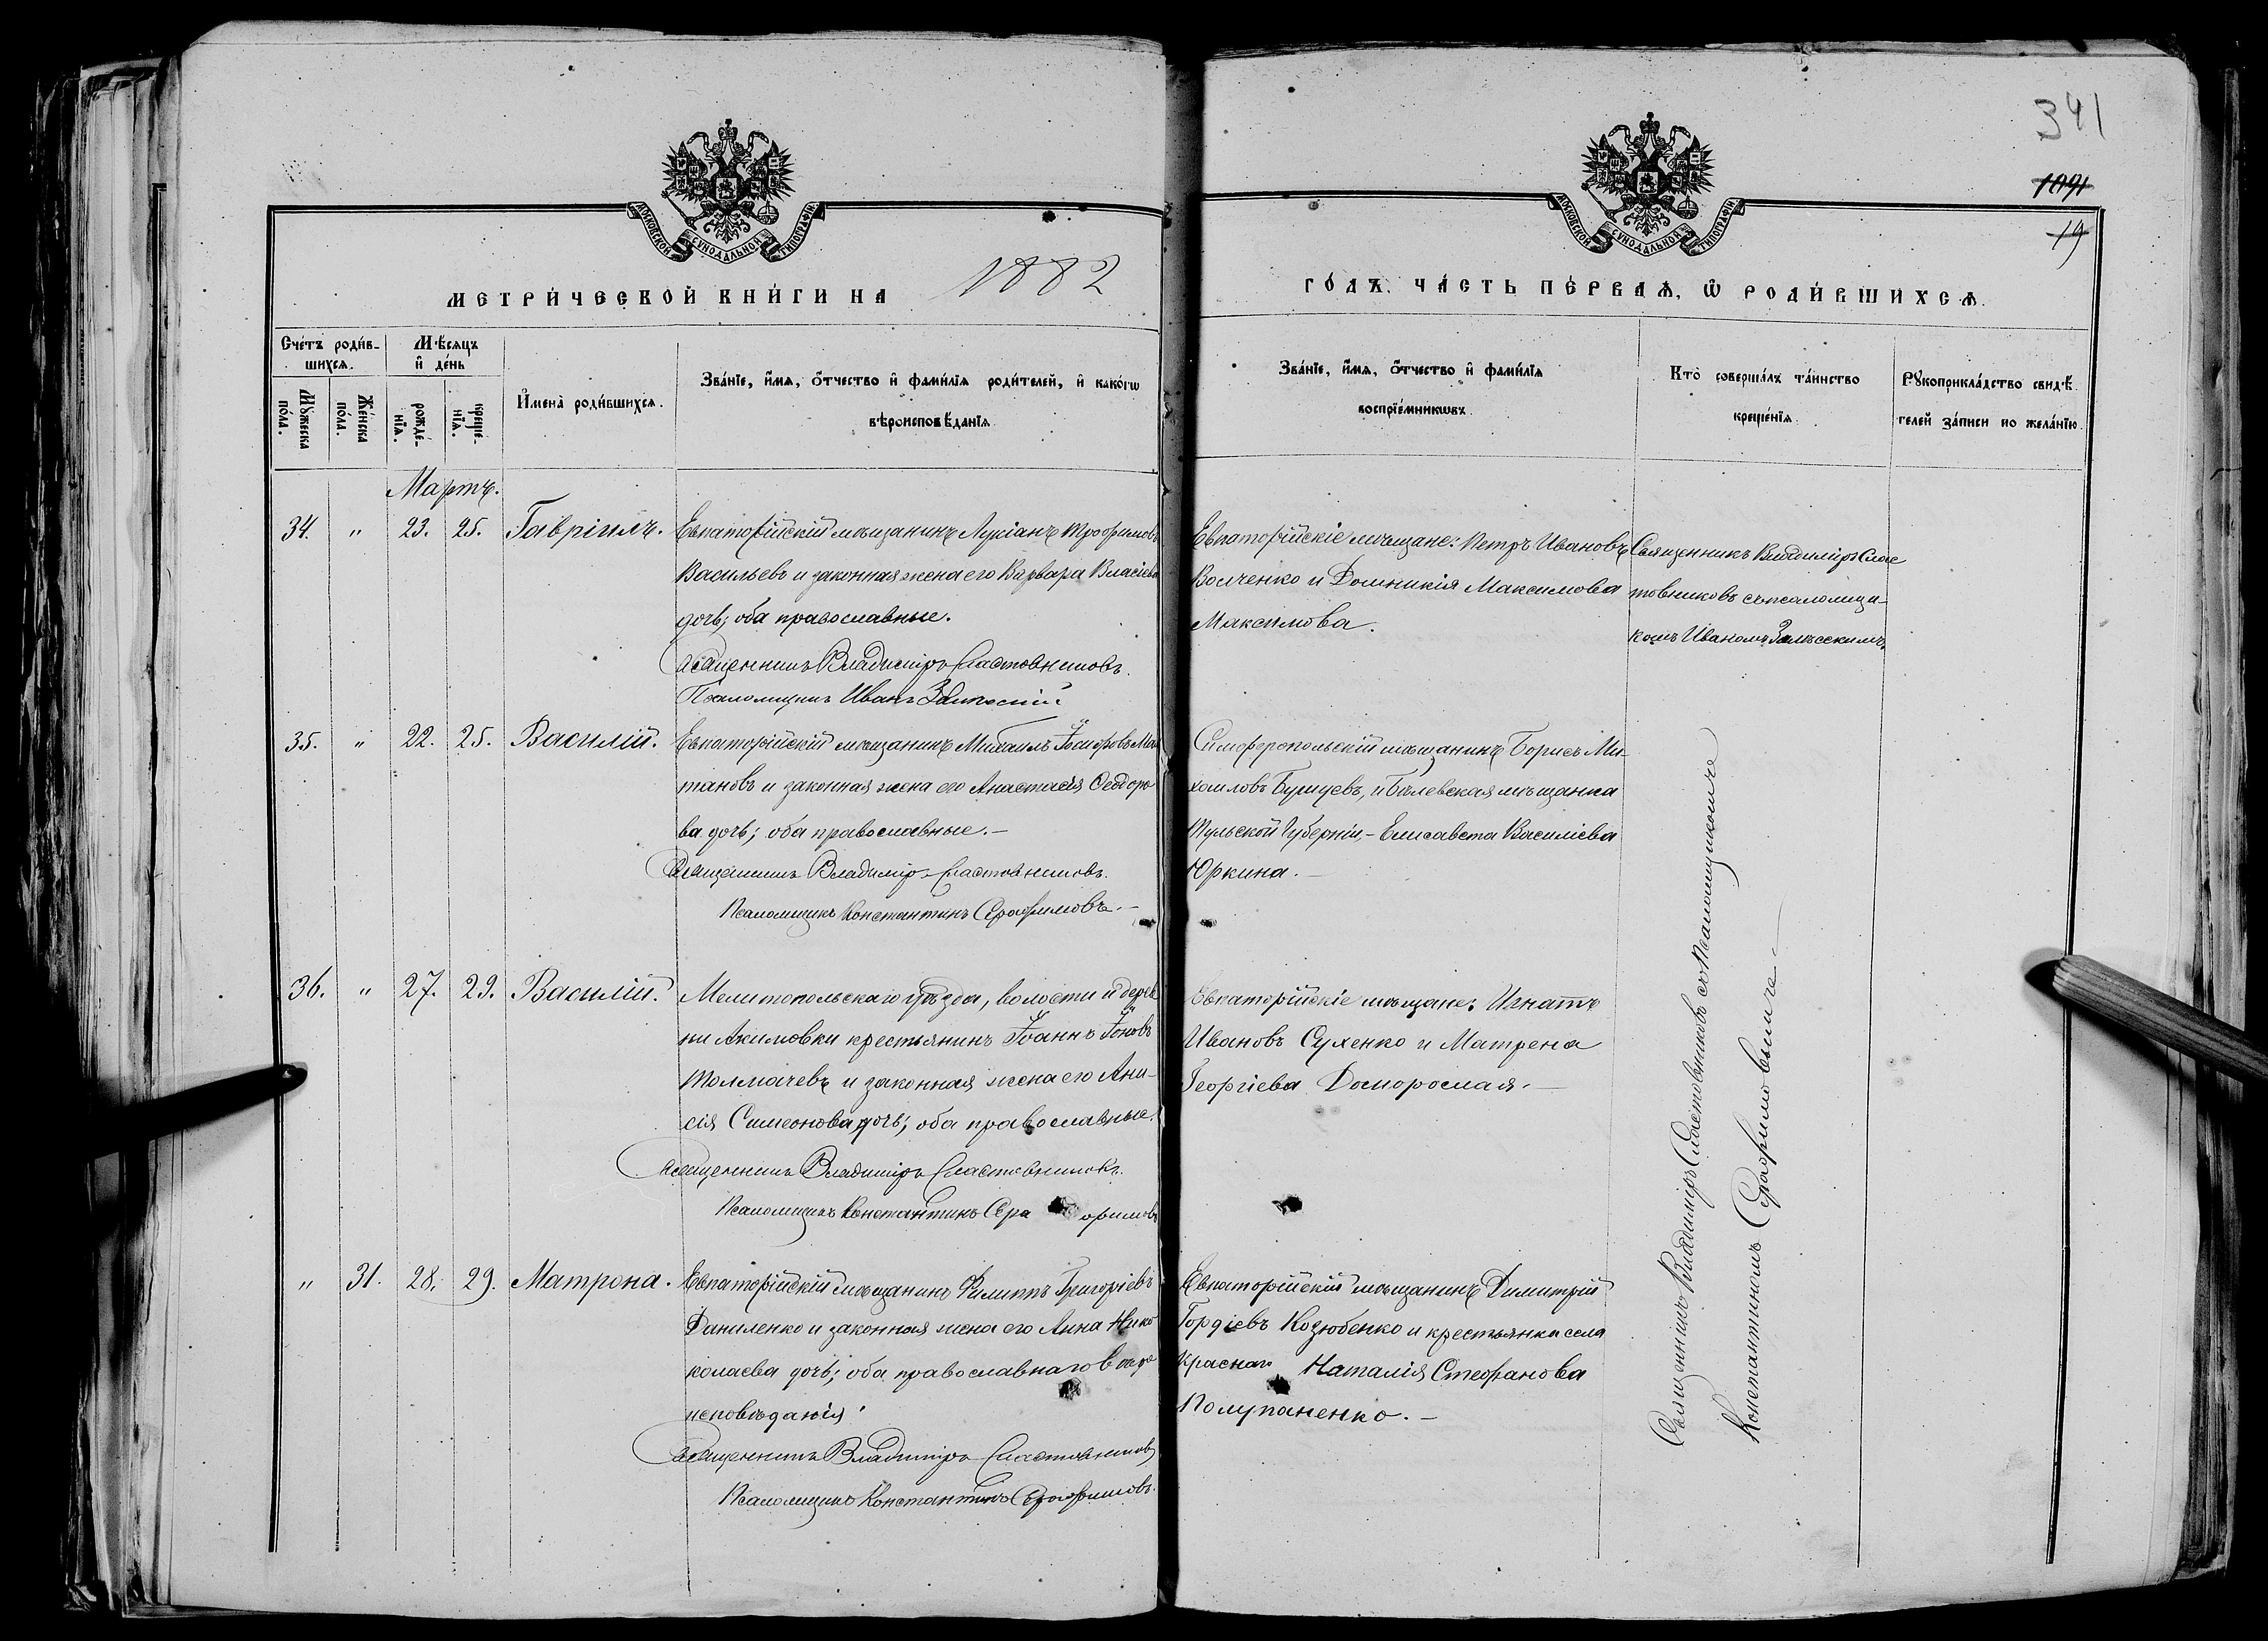 341
1091
19
МОСКОВСКОЙ СѴНОДАЛЬНОЙ ТИПОГРАФІИ
МОСКОВСКОЙ СѴНОДАЛЬНОЙ ТИПОГРАФІИ
МЕТРИ́ЧЕСКОЙ КНИ́ГИ НА 1882
ГО́ДЪ, ЧА́СТЬ ПЕ́РВАѦ, Ѿ РОДИ́ВШИХСѦ.
Сче́тъ роди́в-
шихсѧ.
Мꙋ́жеска
по́ла.
Же́нска
по́ла.
Мѣ́сяцъ
и̂ де́нь
рожде́-
нїѧ.
креще́-
нїѧ.
И҆мена̀ роди́вшихсѧ.
Зва́нїе, и҆́мѧ, ѻ҆́тчество и҆ фами́лїѧ роди́телей, и҆ како́гѡ
вѣроисповѣ́данїѧ.
Зва́нїе, и҆́мѧ, ѻ҆́тчество и҆ фами́лїѧ
воспрїе́мникѡвъ.
Кто̀ соверша́лъ та́инство
креще́нїѧ.
Рꙋкоприкла́дство свидѣ́-
телей за́писи по жела́нїю.
Мартъ.
34. " 23. 25. Гавріилъ.
Евпаторійскій мѣщанинъ Лукіанъ Трофимовъ
Васильевъ и законная жена его Варвара Власіева
дочь; оба православные.
Священникъ Владиміръ Сластовниковъ.
Псаломщикъ Иванъ Залѣсскій
Евпаторійскіе мѣщане: Петръ Ивановъ
Волченко и Домникія Максимова
Максимова.
Священникъ Владиміръ Слас
товниковъ съ псаломщи-
комъ Иваномъ Залѣсскимъ
35. " 22. 25. Василій.
Евпаторійскій мѣщанинъ Михаилъ
и законная жена его Анастасія Ѳеодоро
ва дочь; оба православные.—
Священникъ Владиміръ Сластовниковъ.
Псаломщикъ Константинъ Серафимовъ.—
Симферопольскій мѣщанинъ Борисъ Ми-
хаиловъ и Бѣлевская мѣщанка
Тульской Губерніи,- Елисавета Василіева
Юркина.—
36. " 27. 29. Василій.
Мелитопольскаго уѣзда, волости и дерев
ни Акимовки крестьянинъ Іоаннъ Іоновъ
Толмачевъ и законная жена его Ани-
сія Симеонова дочь; оба православные.
Священникъ Владиміръ Сластовниковъ.
Псаломщикъ Константинъ Сера фимовъ
Евпаторійскіе мѣщане: Игнатъ
Ивановъ Сухенко и Матрена
Георгіева Доморослая.—
" 31. 28. 29. Матрона.
Евпаторійскій мѣщанинъ Филиппъ Григоріевъ
Даниленко и законная жена его Анна Нико
колаева дочь; оба православнаго вѣро
исповѣданія.
Священникъ Владиміръ Сластовниковъ
Псаломщикъ Константинъ Серафимовъ.
Евпаторійскій мѣщанинъ Димитрій
Гордіевъ Козюбенко и крестьянка села
Краснаго Наталія Стефанова
Полупаненко.—
Священникъ Владиміръ Сластовниковъ съ Псаломщикомъ
Константиномъ Серафимовымъ.—